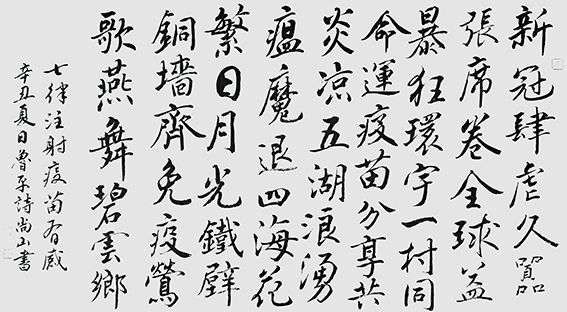 新冠肆虐久囂
張席卷全球益
暴狂環宇一村同
命運疫苗分享共
炎涼五湖浪湧
瘟魔退四海花
繁日月光鐵壁
銅墻齊免疫鶯
歌燕舞碧雲鄉
七律注射疫苗有感
辛丑夏日魯平詩尚山書